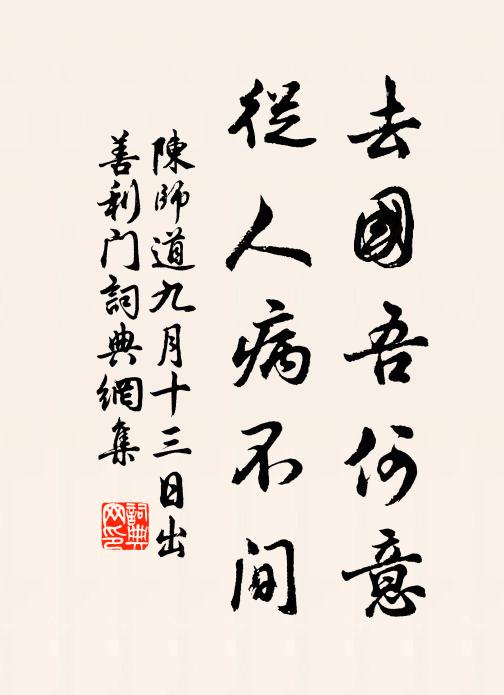 去國吾何意
從人病不間
陳師道九月十三日出
善利门詞典網集
詞典网印